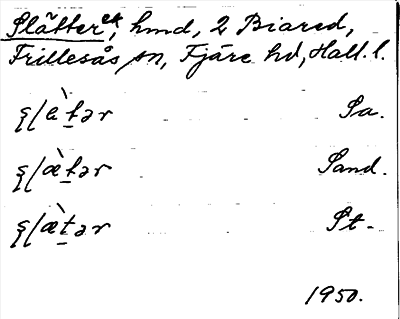 Slätter et, hmd, 2 Biared,
Frillesås sn, Fjäre hd, Hall. l.
s̨lètər Sa.
s̨læ̀tər Sand.
s̨læ̀tər St.
1950.